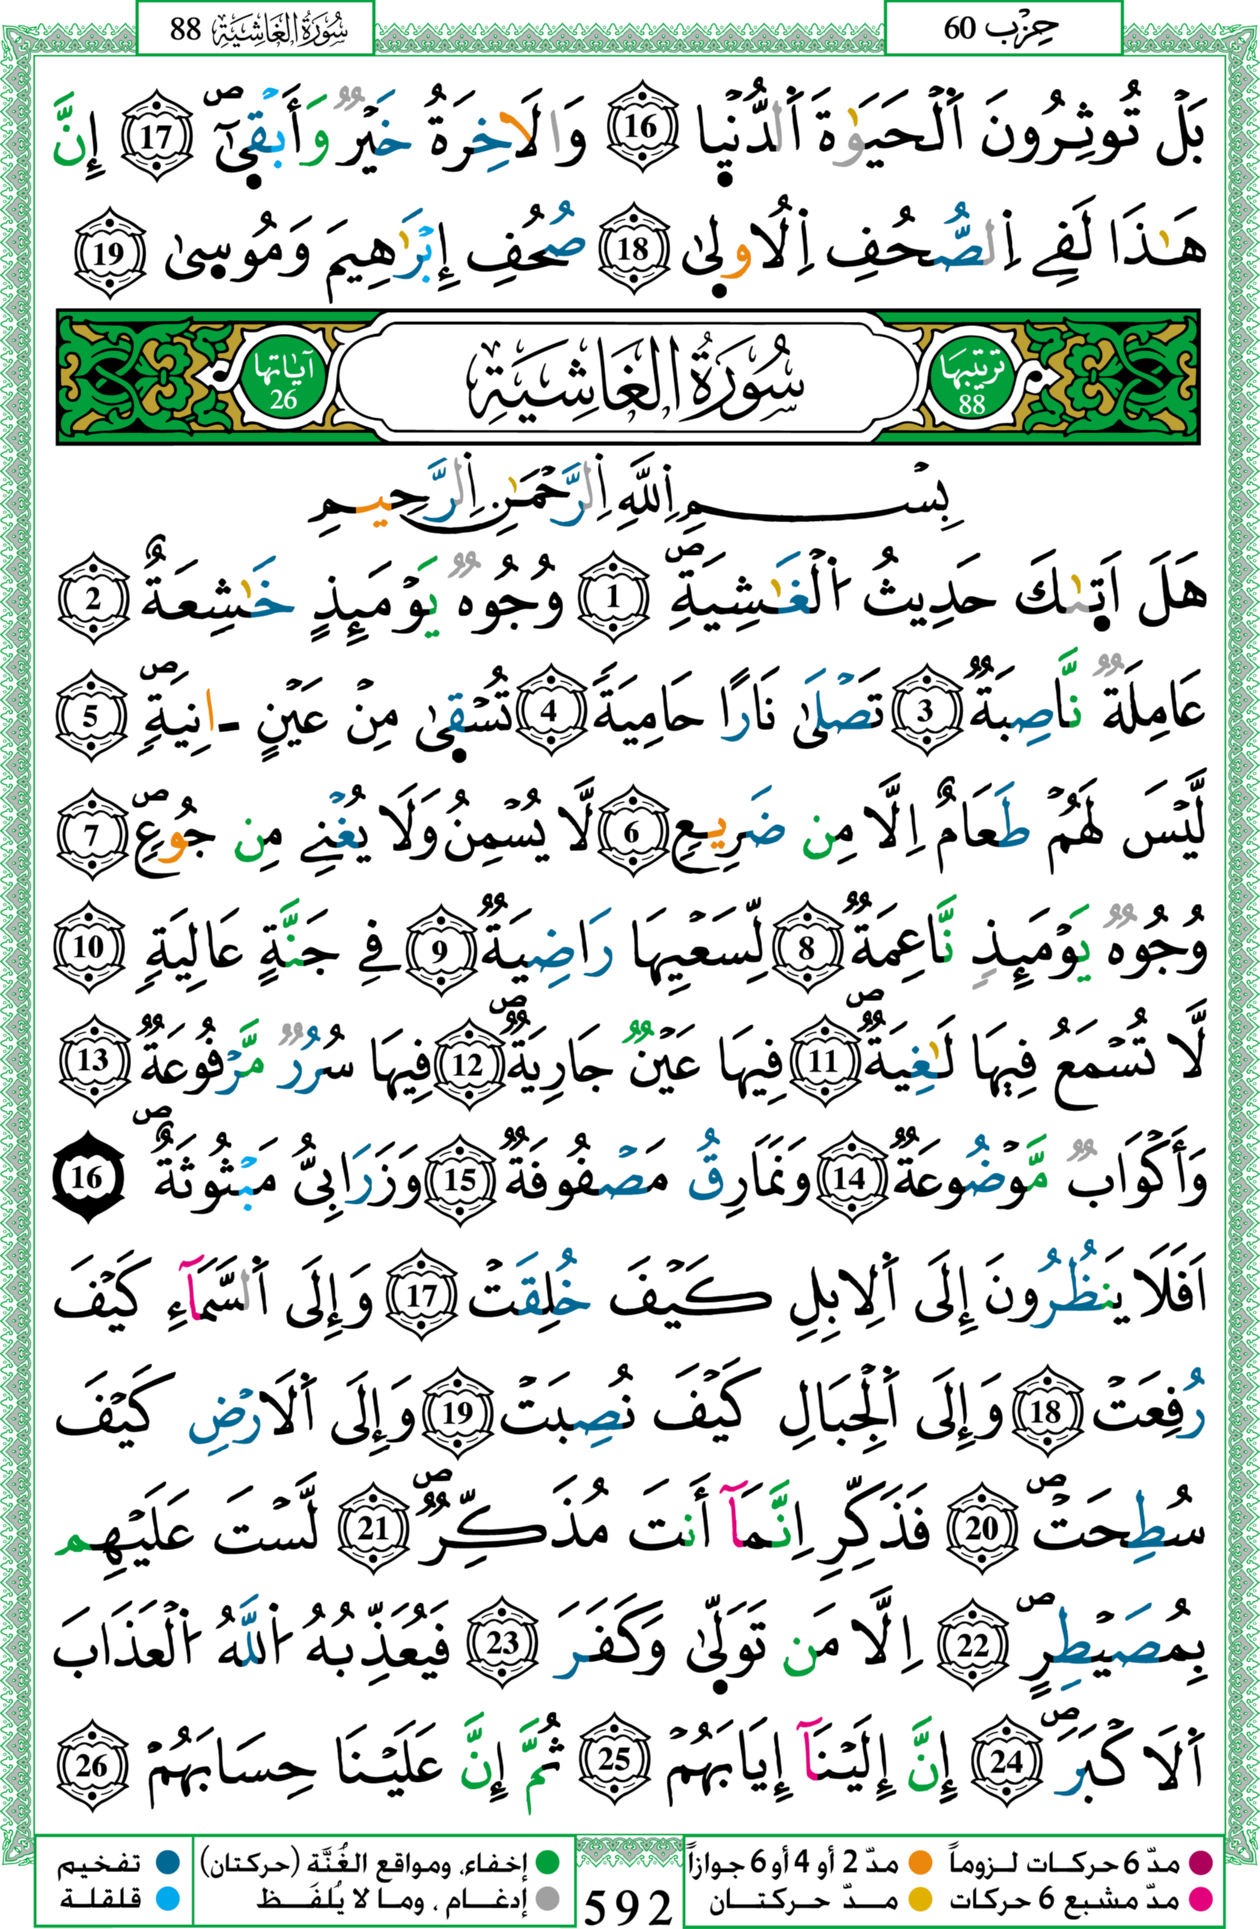 حِزْب 60
سُورَةُ الغَاشِيَة 88
بَلْ تُوثِرُونَ اَ۬لْحَيَوٰةَ اَ۬لدُّنْي۪ا 16 وَالَاخِرَةُ خَيْرٞ وَأَبْق۪ىٰٓۖ 17 إِنَّ
هَٰذَا لَفِے اِ۬لصُّحُفِ اِ۬لُاول۪ىٰ 18 صُحُفِ إِبْرَٰهِيمَ وَمُوس۪ىٰ 19
ترتيبها 88
سُورَةُ الغَاشِيَة
آياتها 26
بِسْمِ اِ۬للَّهِ اِ۬لرَّحْمَٰنِ اِ۬لرَّحِيمِ
هَلَ اَت۪يٰكَ حَدِيثُ اُ۬لْغَٰشِيَةِۖ 1 وُجُوهٞ يَوْمَئِذٍ خَٰشِعَةٌ 2
عَامِلَةٞ نَّاصِبَةٞ 3 تَصْلَىٰ نَارًا حَامِيَةٗ 4 تُسْق۪ىٰ مِنْ عَيْنٍ ـ اٰنِيَةٖۖ 5
لَّيْسَ لَهُمْ طَعَامٌ اِلَّا مِن ضَرِيعٖ 6 لَّا يُسْمِنُ وَلَا يُغْنِے مِن جُوعٖۖ 7
وُجُوهٞ يَوْمَئِذٖ نَّاعِمَةٞ 8 لِّسَعْيِهَا رَاضِيَةٞ 9 فِے جَنَّةٍ عَالِيَةٖ 10
لَّا تُسْمَعُ فِيهَا لَٰغِيَةٞۖ 11 فِيهَا عَيْنٞ جَارِيَةٞۖ 12 فِيهَا سُرُرٞ مَّرْفُوعَةٞ 13
وَأَكْوَابٞ مَّوْضُوعَةٞ 14 وَنَمَارِقُ مَصْفُوفَةٞ 15 وَزَرَابِيُّ مَبْثُوثَةٌۖ 16
اَفَلَا يَنظُرُونَ إِلَى اَ۬لِابِلِ كَيْفَ خُلِقَتْ 17 وَإِلَى اَ۬لسَّمَآءِ كَيْفَ
رُفِعَتْ 18 وَإِلَى اَ۬لْجِبَالِ كَيْفَ نُصِبَتْ 19 وَإِلَى اَ۬لَارْضِ كَيْفَ
سُطِحَتْۖ 20 فَذَكِّرِ اِنَّمَآ أَنتَ مُذَكِّرٞۖ 21 لَّسْتَ عَلَيْهِم
بِمُصَيْطِرٍۖ 22 اِلَّا مَن تَوَلّ۪ىٰ وَكَفَرَ 23 فَيُعَذِّبُهُ اُ۬للَّهُ اُ۬لْعَذَابَ
اَ۬لَاكْبَرَۖ 24 إِنَّ إِلَيْنَآ إِيَابَهُمْ 25 ثُمَّ إِنَّ عَلَيْنَا حِسَابَهُمْ 26
مدّ 6 حركات لـزوماً
مدّ 2 أو 4 أو 6 جوازاً
إخفاء، ومواقع الغُنَّة (حركتان)
تفخيم
مدّ مشبع 6 حركات
مــدّ حـركتــان
إدغـام ، ومـا لا يُلفَـظ
قلقلة
592